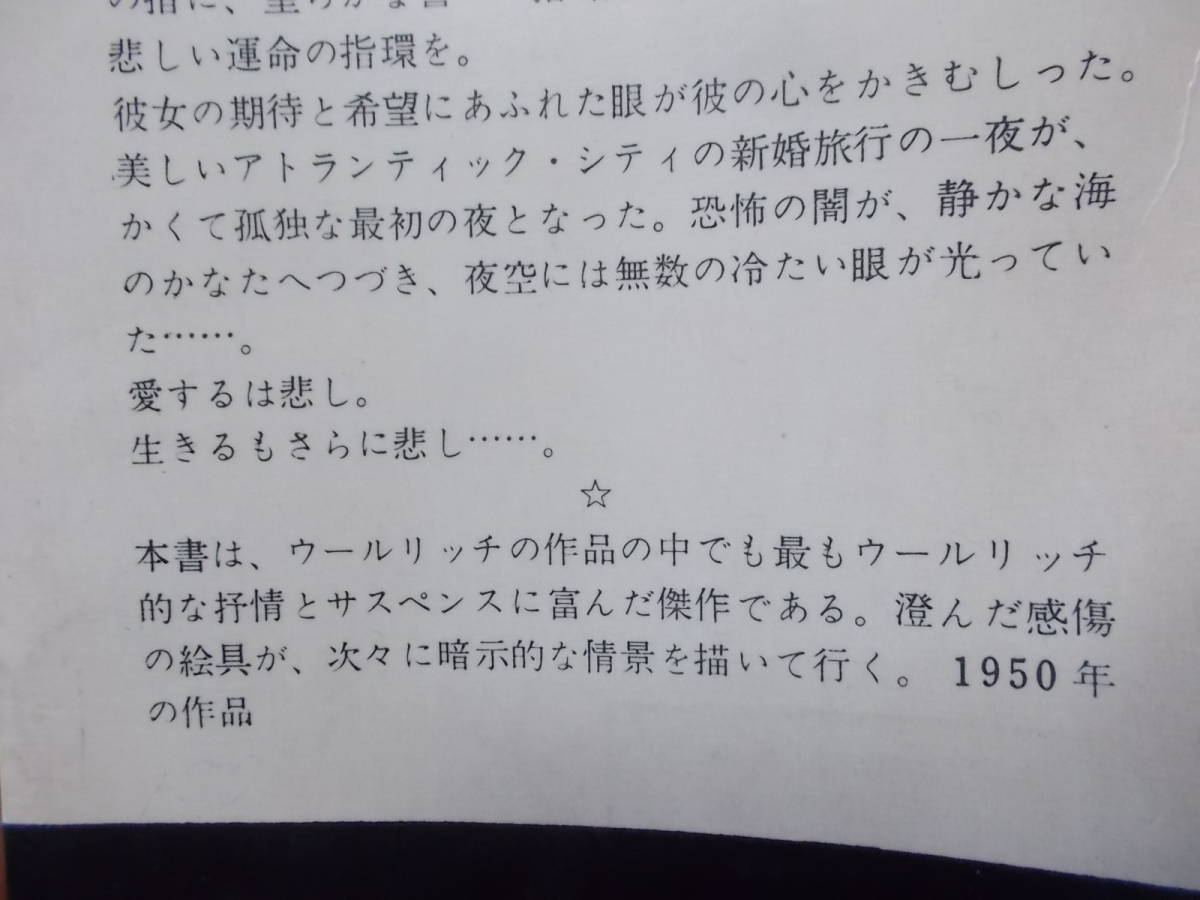 悲しい運命の指環を。
彼女の期待と希望にあふれた眼が彼の心をかきむしった。
美しいアトランティック・シティの新婚旅行の一夜が、
かくて孤独な最初の夜となった。恐怖の闇が、静かな海
のかなたへつづき、夜空には無数の冷たい眼が光ってい
た……。
愛するは悲し。
生きるもさらに悲し……。
☆
本書は、ウールリッチの作品の中でも最もウールリッチ
的な抒情とサスペンスに富んだ傑作である。澄んだ感傷
の絵具が、次々に暗示的な情景を描いて行く。1950年
の作品